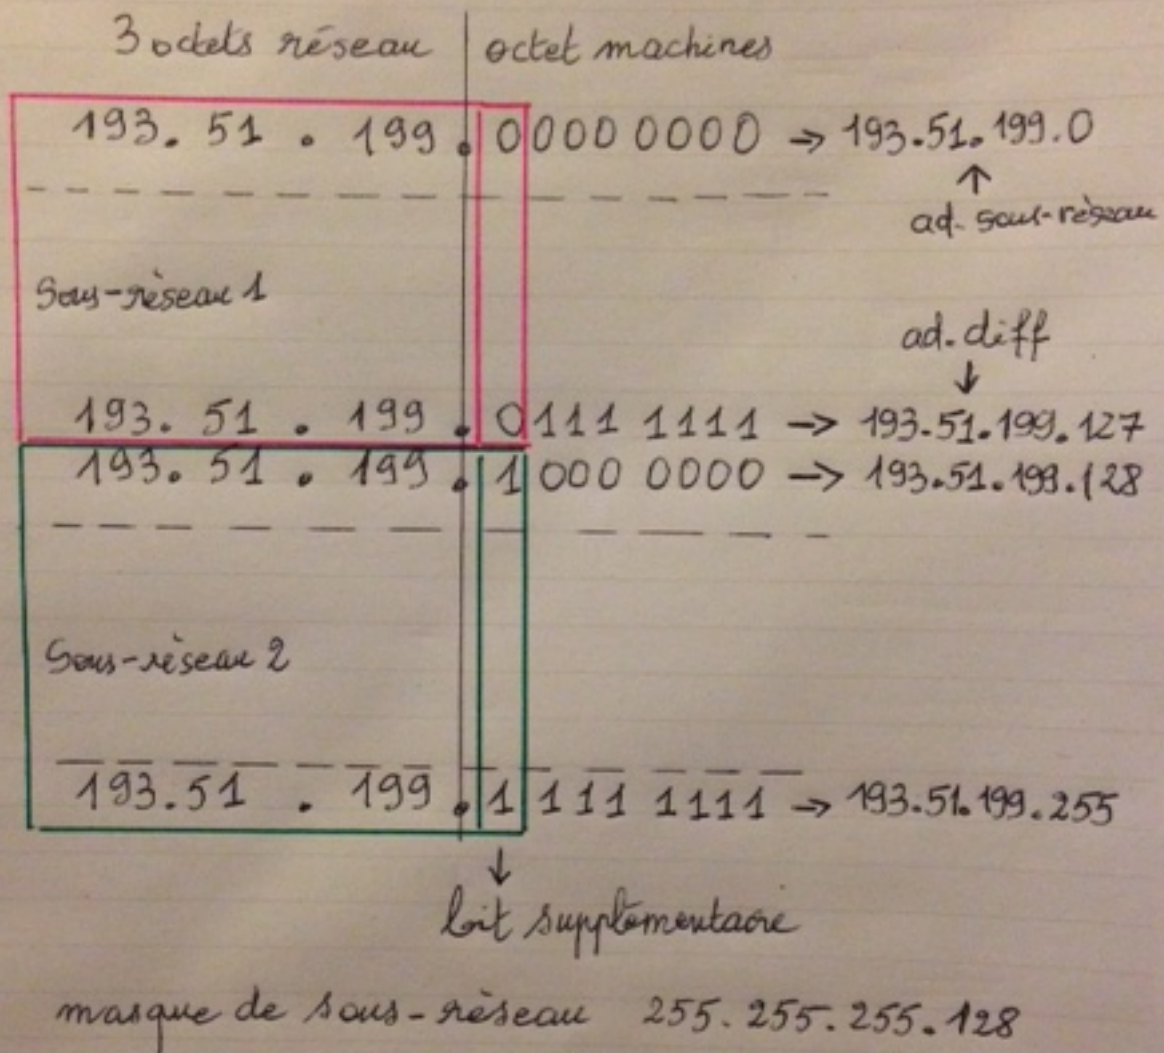 3 octets réseau | octet machines
193. 51 . 199 . 0000 0000 → 193.51.199.0
↑
ad. sous-réseau
Sous-réseau 1
ad. diff
↓
193. 51 . 199 . 0111 1111 → 193.51.199.127
193. 51 . 199 . 1000 0000 → 193.51.199.128
Sous-réseau 2
193.51 . 199 . 1111 1111 → 193.51.199.255
↓
bit supplémentaire
masque de sous-réseau 255. 255. 255. 128